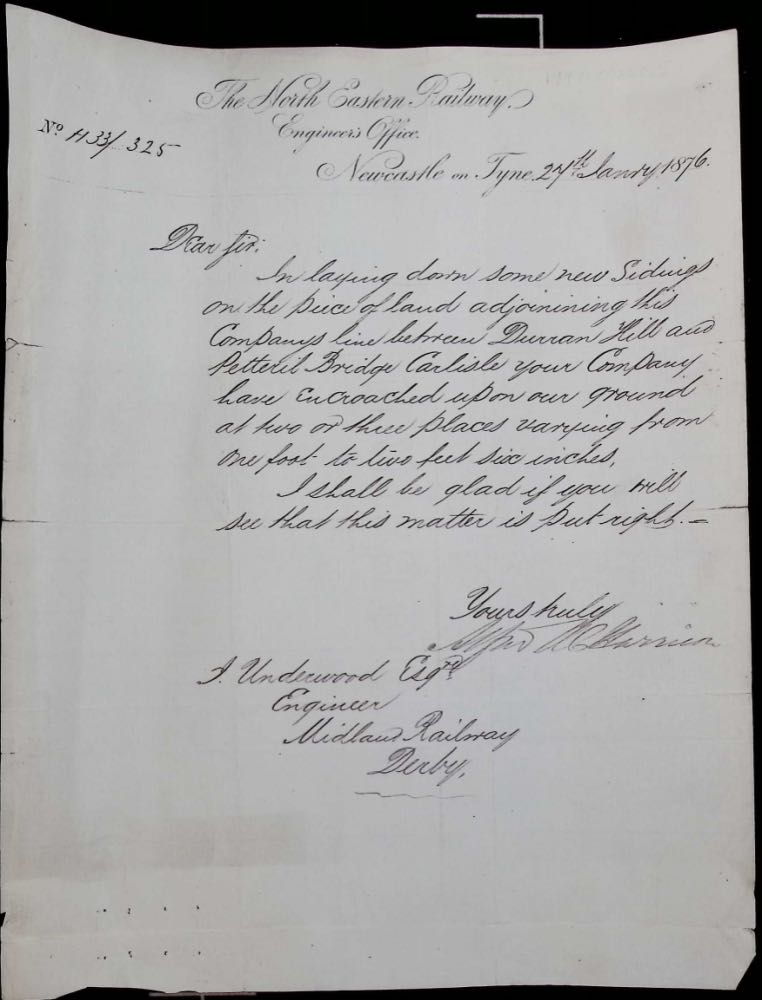 The North Eastern Railway.
Engineer's Office.
Nº H33/325
Newcastle on Tyne. 27th Janry 1876.
Dear Sir:
In laying down some new Sidings
on the piece of land adjoinining this
Companys line between Durran Hill and
Petteril Bridge Carlisle your Company
have encroached upon our ground
at two or three places varying from
one foot to two feet six inches,
I shall be glad if you will
see that this matter is put right. =
Yours truly
Harrison
J. Underwood Esqre
Engineer
Midland Railway
Derby.